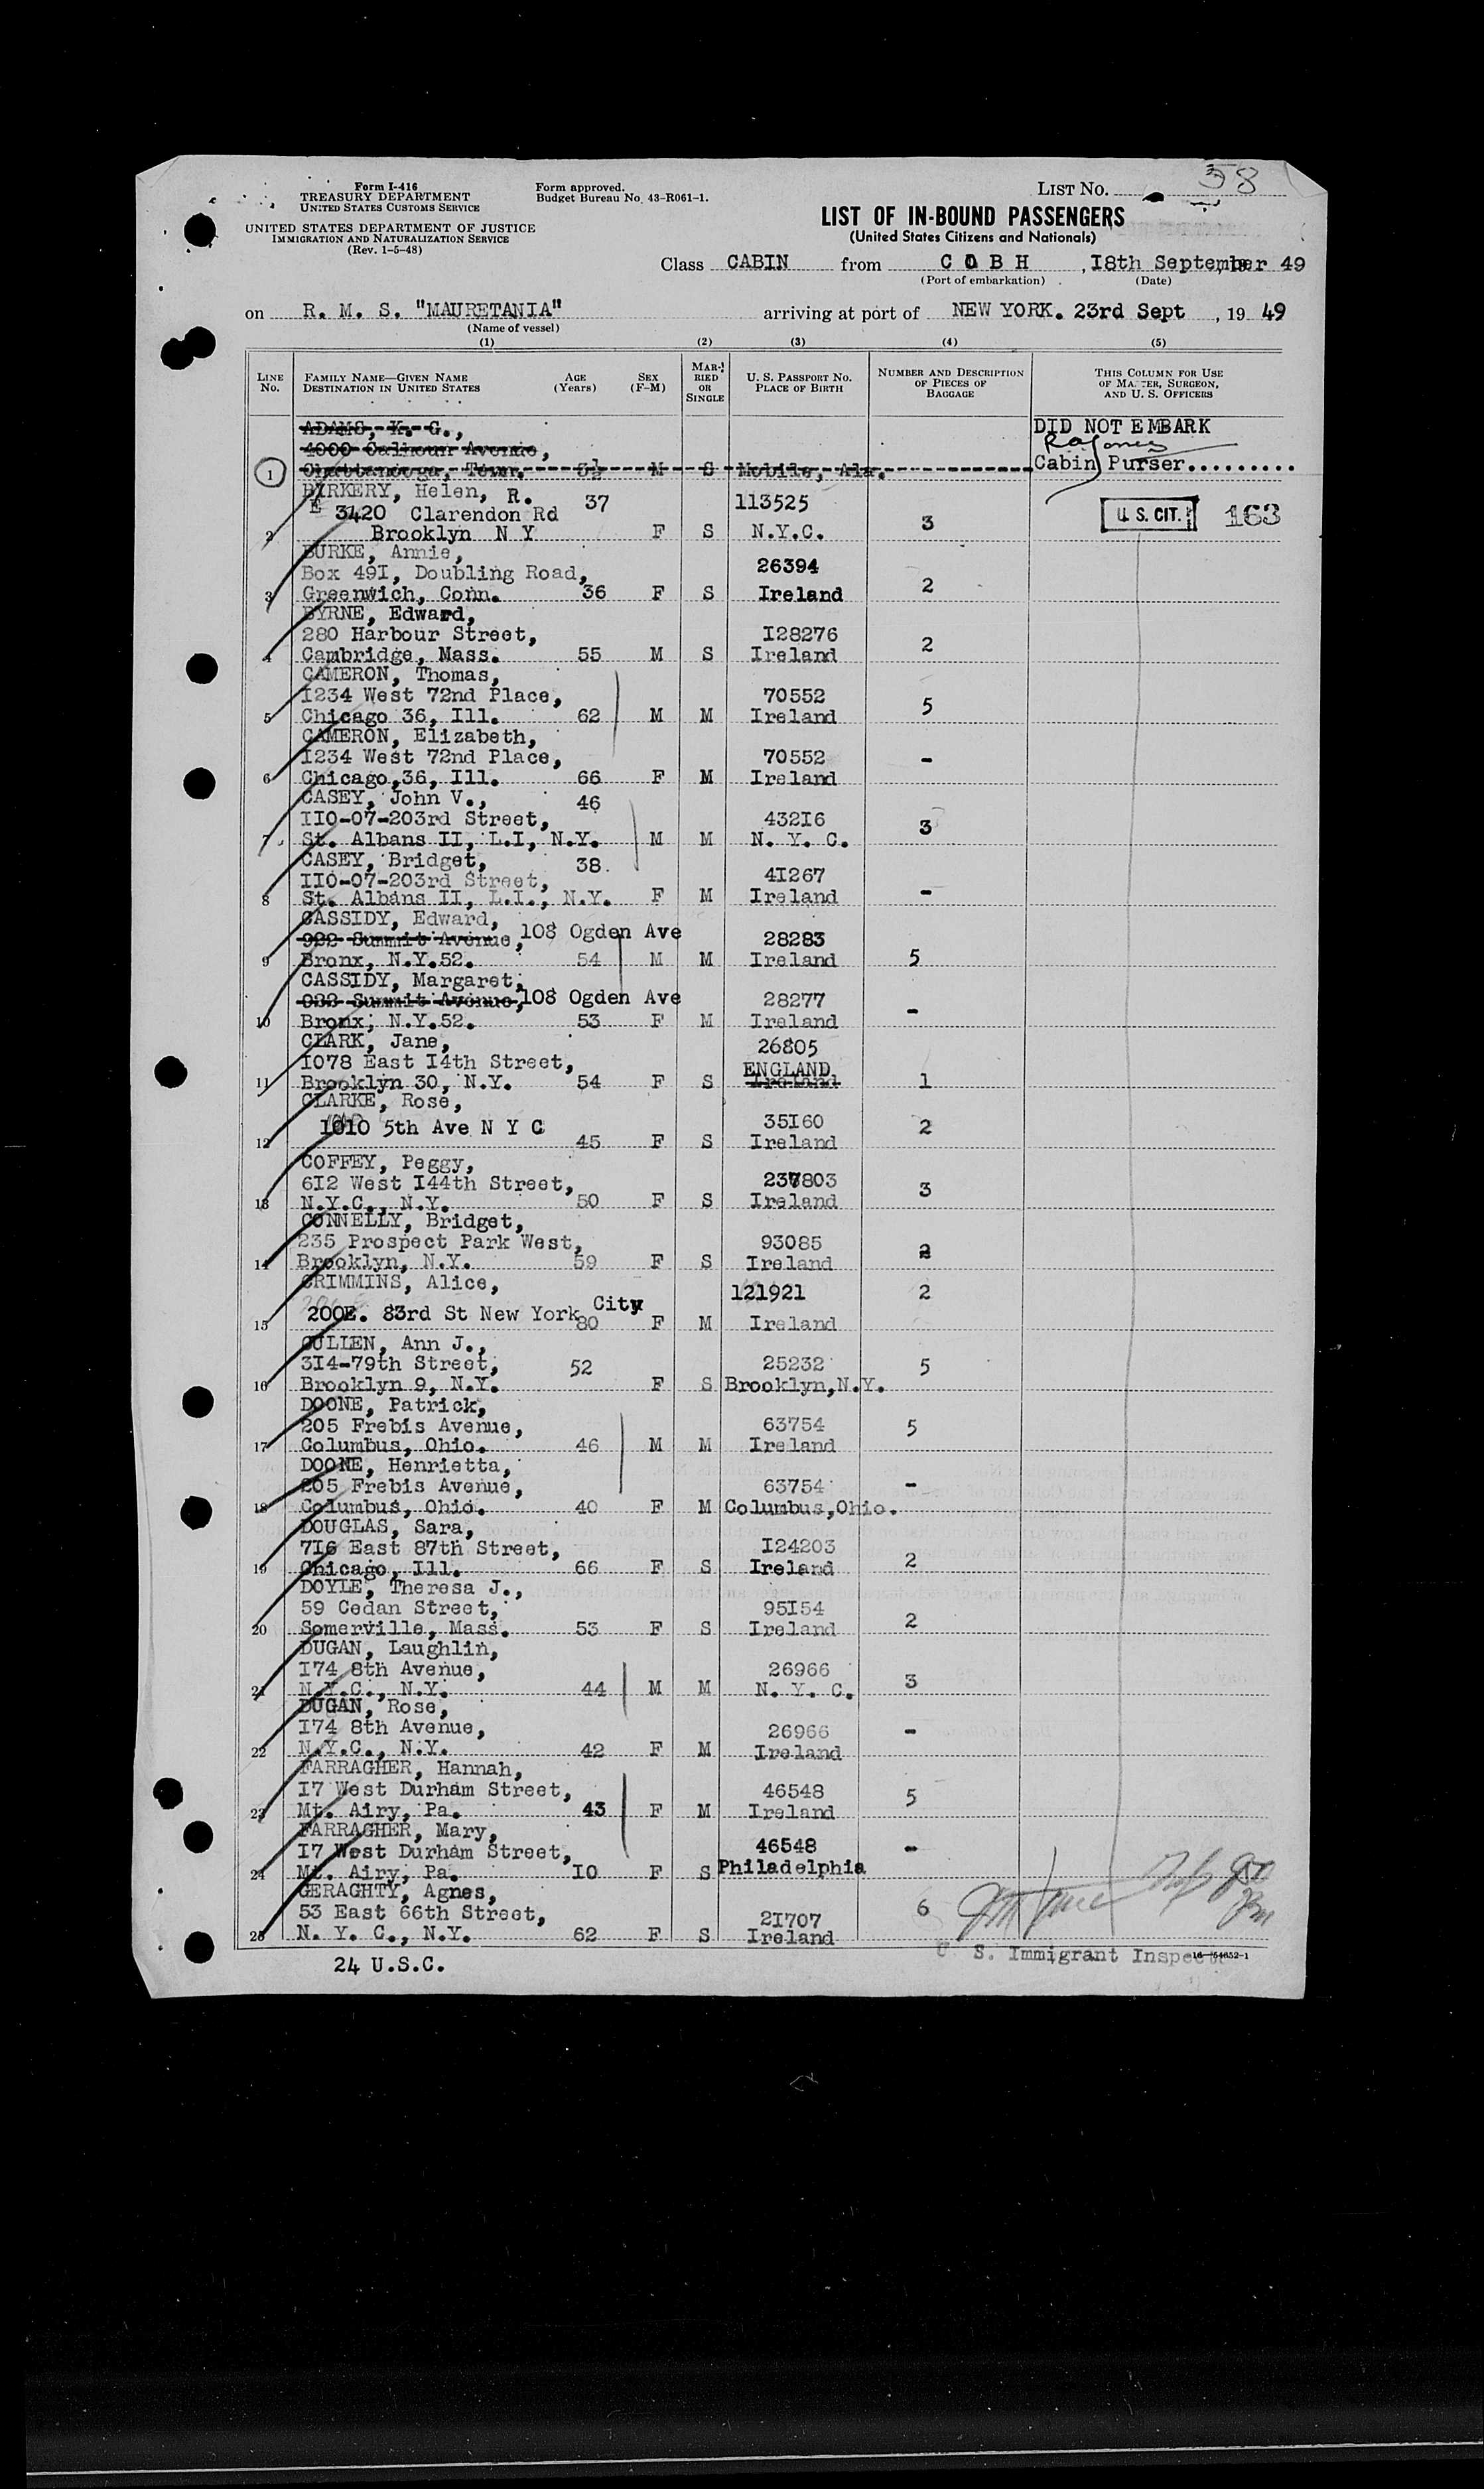 Form I-416
TREASURY DEPARTMENT
UNITED STATES CUSTOMS SERVICE
UNITED STATES DEPARTMENT OF JUSTICE
IMMIGRATION AND NATURALIZATION SERVICE
(Rev. 1-5-48)
Form approved.
Budget Bureau No. 43-R061-1.
LIST NO. 58
LIST OF IN-BOUND PASSENGERS
(United States Citizens and Nationals)
Class CABIN from COBH, 18th September 49
(Port of embarkation) (Date)
on R. M. S. "MAURETANIA" arriving at port of NEW YORK. 23rd Sept, 19 49
(Name of vessel)
(1) (2) (3) (4) (5)
LINE NO. FAMILY NAME—GIVEN NAME DESTINATION IN UNITED STATES AGE (Years) SEX (F-M) MARRIED OR SINGLE U. S. PASSPORT NO. PLACE OF BIRTH NUMBER AND DESCRIPTION OF PIECES OF BAGGAGE THIS COLUMN FOR USE OF MASTER, SURGEON, AND U. S. OFFICERS
ADAMS, K. G., DID NOT EMBARK
4000 Calhoun Avenue,
1 Chattanooga, Tenn. M S Mobile, Ala. Cabin Purser.........
BIRKERY, Helen, R. 37 113525
E 3420 Clarendon Rd 3 U. S. CIT. 163
2 Brooklyn N Y F S N.Y.C.
BURKE, Annie, 26394
Box 49I, Doubling Road, 2
3 Greenwich, Conn. 36 F S Ireland
BYRNE, Edward,
280 Harbour Street, I28276 2
4 Cambridge, Mass. 55 M S Ireland
CAMERON, Thomas,
I234 West 72nd Place, 70552 5
5 Chicago 36, Ill. 62 M M Ireland
CAMERON, Elizabeth,
I234 West 72nd Place, 70552 -
6 Chicago,36, Ill. 66 F M Ireland
CASEY, John V., 46
IIO-07-203rd Street, 432I6 3
7 St. Albans II, L.I, N.Y. M M N. Y. C.
CASEY, Bridget, 38.
IIO-07-203rd Street, 4I267 -
8 St. Albans II, L.I., N.Y. F M Ireland
CASSIDY, Edward,
922 Summit Avenue, 108 Ogden Ave 28283
9 Bronx, N.Y.52. 54 M M Ireland 5
CASSIDY, Margaret,
922 Summit Avenue, 108 Ogden Ave 28277 -
10 Bronx, N.Y.52. 53 F M Ireland
CLARK, Jane, 26805
I078 East I4th Street, ENGLAND
11 Brooklyn 30, N.Y. 54 F S Ireland 1
CLARKE, Rose,
1010 5th Ave N Y C 35I60 2
12 45 F S Ireland
COFFEY, Peggy,
6I2 West I44th Street, 237803 3
13 N.Y.C., N.Y. 50 F S Ireland
CONNELLY, Bridget,
235 Prospect Park West, 93085 2
14 Brooklyn, N.Y. 59 F S Ireland
CRIMMINS, Alice, 121921 2
200E. 83rd St New York City
15 80 F M Ireland
CULLEN, Ann J.,
3I4-79th Street, 52 25232 5
16 Brooklyn 9, N.Y. F S Brooklyn,N.Y.
DOONE, Patrick,
205 Frebis Avenue, 63754 5
17 Columbus, Ohio. 46 M M Ireland
DOONE, Henrietta,
205 Frebis Avenue, 63754 -
18 Columbus, Ohio. 40 F M Columbus,Ohio.
DOUGLAS, Sara,
7I6 East 87th Street, I24203 2
19 Chicago, Ill. 66 F S Ireland
DOYLE, Theresa J.,
59 Cedan Street, 95I54 2
20 Somerville, Mass. 53 F S Ireland
DUGAN, Laughlin,
I74 8th Avenue, 26966 3
21 N.Y.C., N.Y. 44 M M N. Y. C.
DUGAN, Rose,
I74 8th Avenue, 26966 -
22 N.Y.C., N.Y. 42 F M Ireland
FARRAGHER, Hannah,
I7 West Durham Street, 46548 5
23 Mt. Airy, Pa. 43 F M Ireland
FARRAGHER, Mary,
I7 West Durham Street, 46548 -
24 Mt. Airy, Pa. IO F S Philadelphia
GERAGHTY, Agnes,
53 East 66th Street, 2I707 6
25 N. Y. C., N.Y. 62 F S Ireland
24 U.S.C. U. S. Immigrant Inspector 16-54652-1